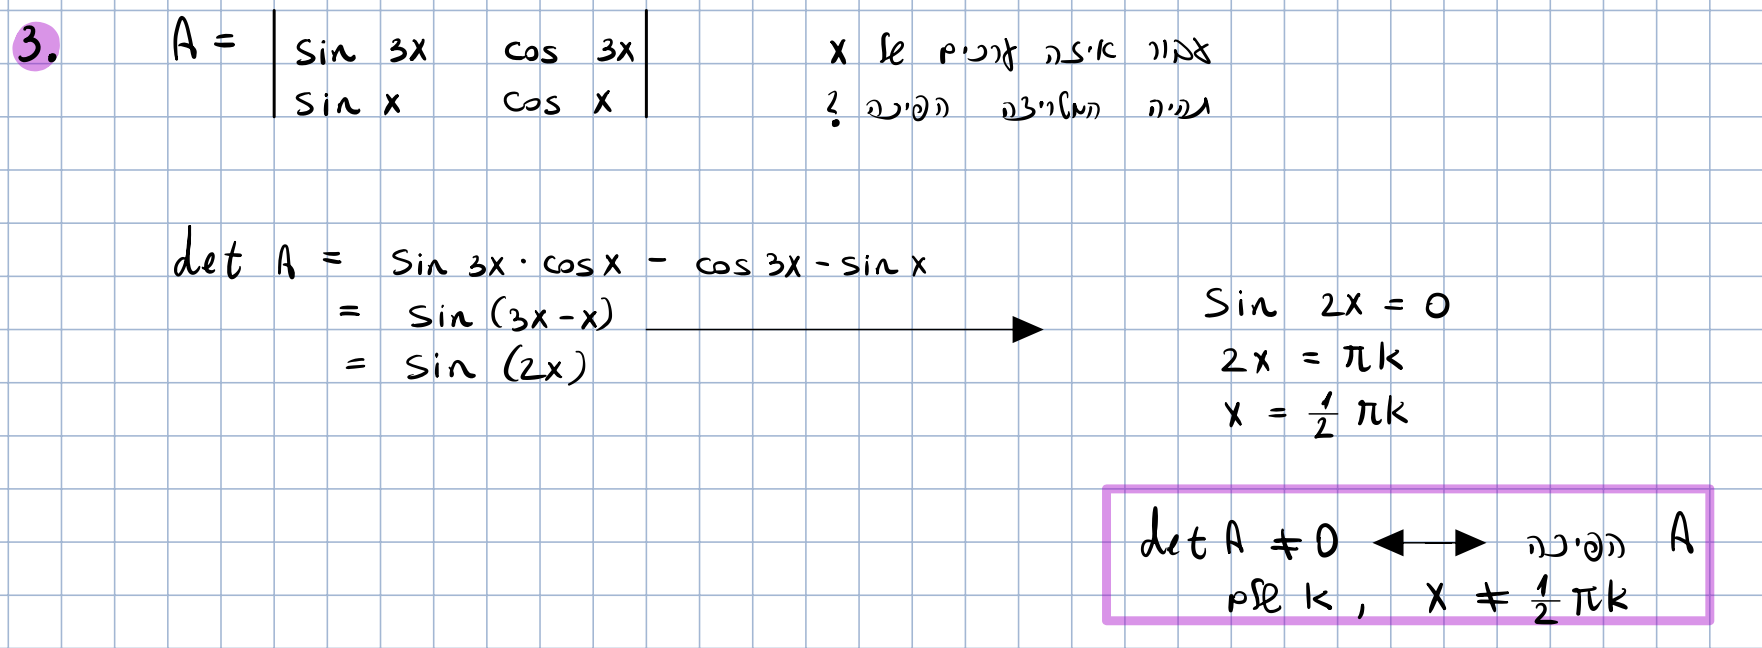 3. A = | sin 3x cos 3x | עבור איזה ערכים של x
| sin x cos x | תהיה המטריצה הפיכה ?
det A = sin 3x · cos x - cos 3x - sin x
= sin (3x-x)
= sin (2x)
sin 2x = 0
2x = πk
x = 1/2 πk
det A ≠ 0 ↔ הפיכה A
שלם k , x ≠ 1/2 πk